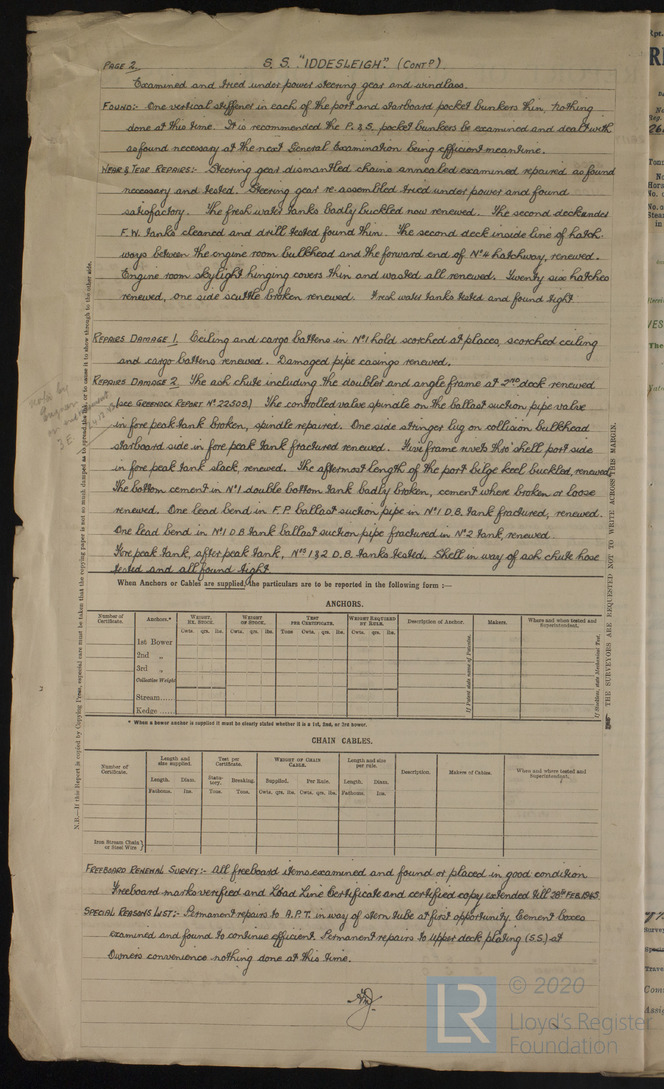 PAGE 2. S. S. "IDDESLEIGH". (CONTD)
Examined and tried under power steering gear and windlass.
FOUND:- One vertical stiffener in each of the port and starboard pocket bunkers thin, nothing
done at this time. It is recommended the P. & S. pocket bunkers be examined and dealt with
as found necessary at the next General Examination being efficient meantime.
WEAR & TEAR REPAIRS:- Steering gear dismantled chains annealed examined repaired as found
necessary and tested. Steering gear re-assembled tried under power and found
satisfactory. The fresh water tanks badly buckled now renewed. The second deck under
F.W. tanks cleaned and drill tested found thin. The second deck inside line of hatch
ways between the engine room bulkhead and the forward end of No 4 hatchway, renewed.
Engine room skylight hinging covers thin and wasted all renewed. Twenty six hatches
renewed, one side scuttle broken renewed. Fresh water tanks tested and found tight
REPAIRS DAMAGE 1. Ceiling and cargo battens in No 1 hold scorched at places, scorched ceiling
and cargo battens renewed. Damaged pipe casings renewed.
REPAIRS DAMAGE 2. The ash chute including the doubler and angle frame at 2nd deck renewed
(see GREENOCK REPORT No 22509.) The controlled valve spindle on the ballast suction pipe valve
in fore peak tank broken, spindle repaired. One side stringer lug on collision bulkhead
starboard side in fore peak tank fractured renewed. Five frame rivets thro' shell port side
in fore peak tank slack, renewed. The aftermost length of the port bilge keel buckled, renewed.
The bottom cement in No 1 double bottom tank badly broken, cement where broken or loose
renewed. One lead bend in F.P ballast suction pipe in No 1 D.B. tank fractured, renewed.
One lead bend in No 1 D B tank ballast suction pipe fractured in No 2 tank, renewed.
Fore peak tank, after peak tank, Nos 1 & 2 D.B. tanks tested. Shell in way of ash chute hose
tested and all found tight.
When Anchors or Cables are supplied, the particulars are to be reported in the following form :—
ANCHORS.
Number of Certificate. Anchors.* WEIGHT, EX. STOCK. WEIGHT OF STOCK. TEST PER CERTIFICATE. WEIGHT REQUIRED BY RULE. Description of Anchor. Makers. Where and when tested and Superintendent.
Cwts. qrs. lbs. Cwts. qrs. lbs. Tons Cwts. qrs. lbs. Cwts. qrs. lbs.
1st Bower
2nd „
3rd „
Collective Weight
Stream
Kedge
If Patent state name of Patentee.
If Stockless, state Mechanical Test.
* When a bower anchor is supplied it must be clearly stated whether it is a 1st, 2nd, or 3rd bower.
CHAIN CABLES.
Number of Certificate. Length and size supplied. Test per Certificate. WEIGHT OF CHAIN CABLE. Length and size per rule. Description. Makers of Cables. When and where tested and Superintendent.
Length. Diam. Statutory. Breaking. Supplied. Per Rule. Length. Diam.
Fathoms. Ins. Tons. Tons. Cwts. qrs. lbs. Cwts. qrs. lbs. Fathoms. Ins.
Iron Stream Chain or Steel Wire
FREEBOARD RENEWAL SURVEY:- All freeboard items examined and found or placed in good condition
Freeboard marks verified and Load Line Certificate and certified copy extended till 28th FEB. 1945
SPECIAL REASONS LIST:- Permanent repairs to A.P.T. in way of stern tube at first opportunity. Cement boxes
examined and found to continue efficient. Permanent repairs to upper deck plating (S.S.) at
Owners convenience nothing done at this time.
N.B.—If this Report is copied by Copying Press, especial care must be taken that the copying paper is not so much damped as to spread the ink or to cause it to show through to the other side.
THE SURVEYORS ARE REQUESTED NOT TO WRITE ACROSS THIS MARGIN.
LR © 2020
Lloyd's Register
Foundation